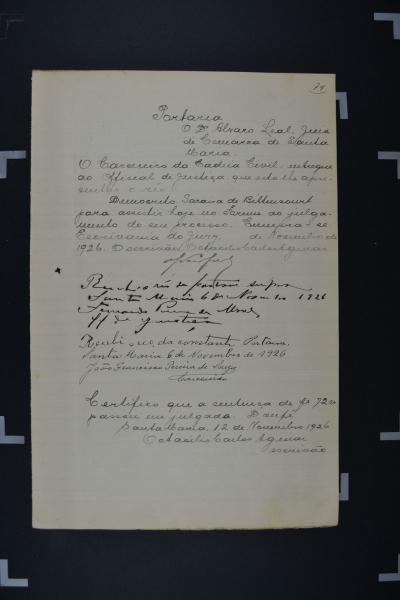 74
Portaria
O Dr Alvaro Leal, Juiz
de Comarca de Santa
Maria.
O Carcereiro da Cadeia Civil, entregue
ao Official de Justiça, que esta lhe apre-
sentar o réo
Democrito Saraiva de Bittencourt
para assistir hoje no Forum ao julga-
mento do seu processo. Cumpra-se
Escrivania do Jury, de Novembro de
1926. O escrivão, Octacilio Carlos Aguiar
Recebi o réo da portaria supra
Santa Maria 6 de Novembro 1926
Fernando
Off de Justiça
Recebi o réo da constante Portaria.
Santa Maria 6 de Novembro de 1926
João Francisco Pereira de Souza
Carcereiro
Certifico que a sentença de fs 72 v
passou em julgado. Dou fé
Santa Maria, 12 de Novembro 1926
Octacilio Carlos Aguiar
escrivão